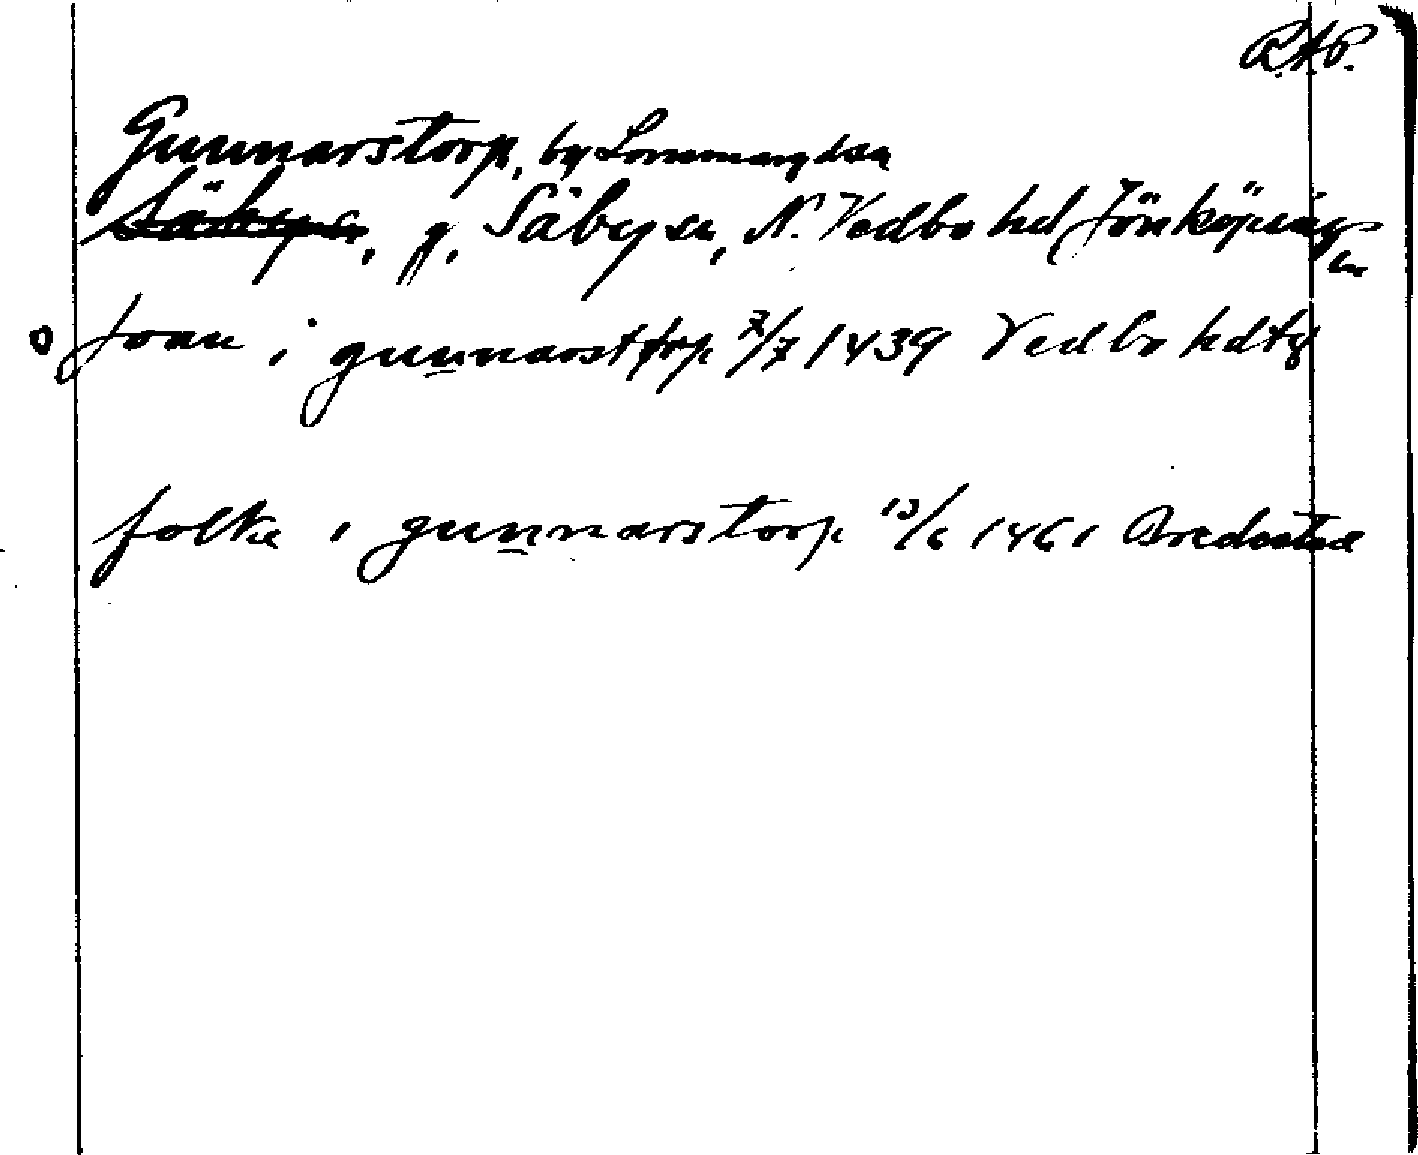 R.A.P.
Gunnarstorp, by Lommaryd sn
Säbysn, g. Säby sn, N. Vedbo hd Jönköpings
ln
joan i gunnarsttorp 7/7 1439 Vedbo hdtg
folke i gunnarstorp 13/6 1461 Bredestad